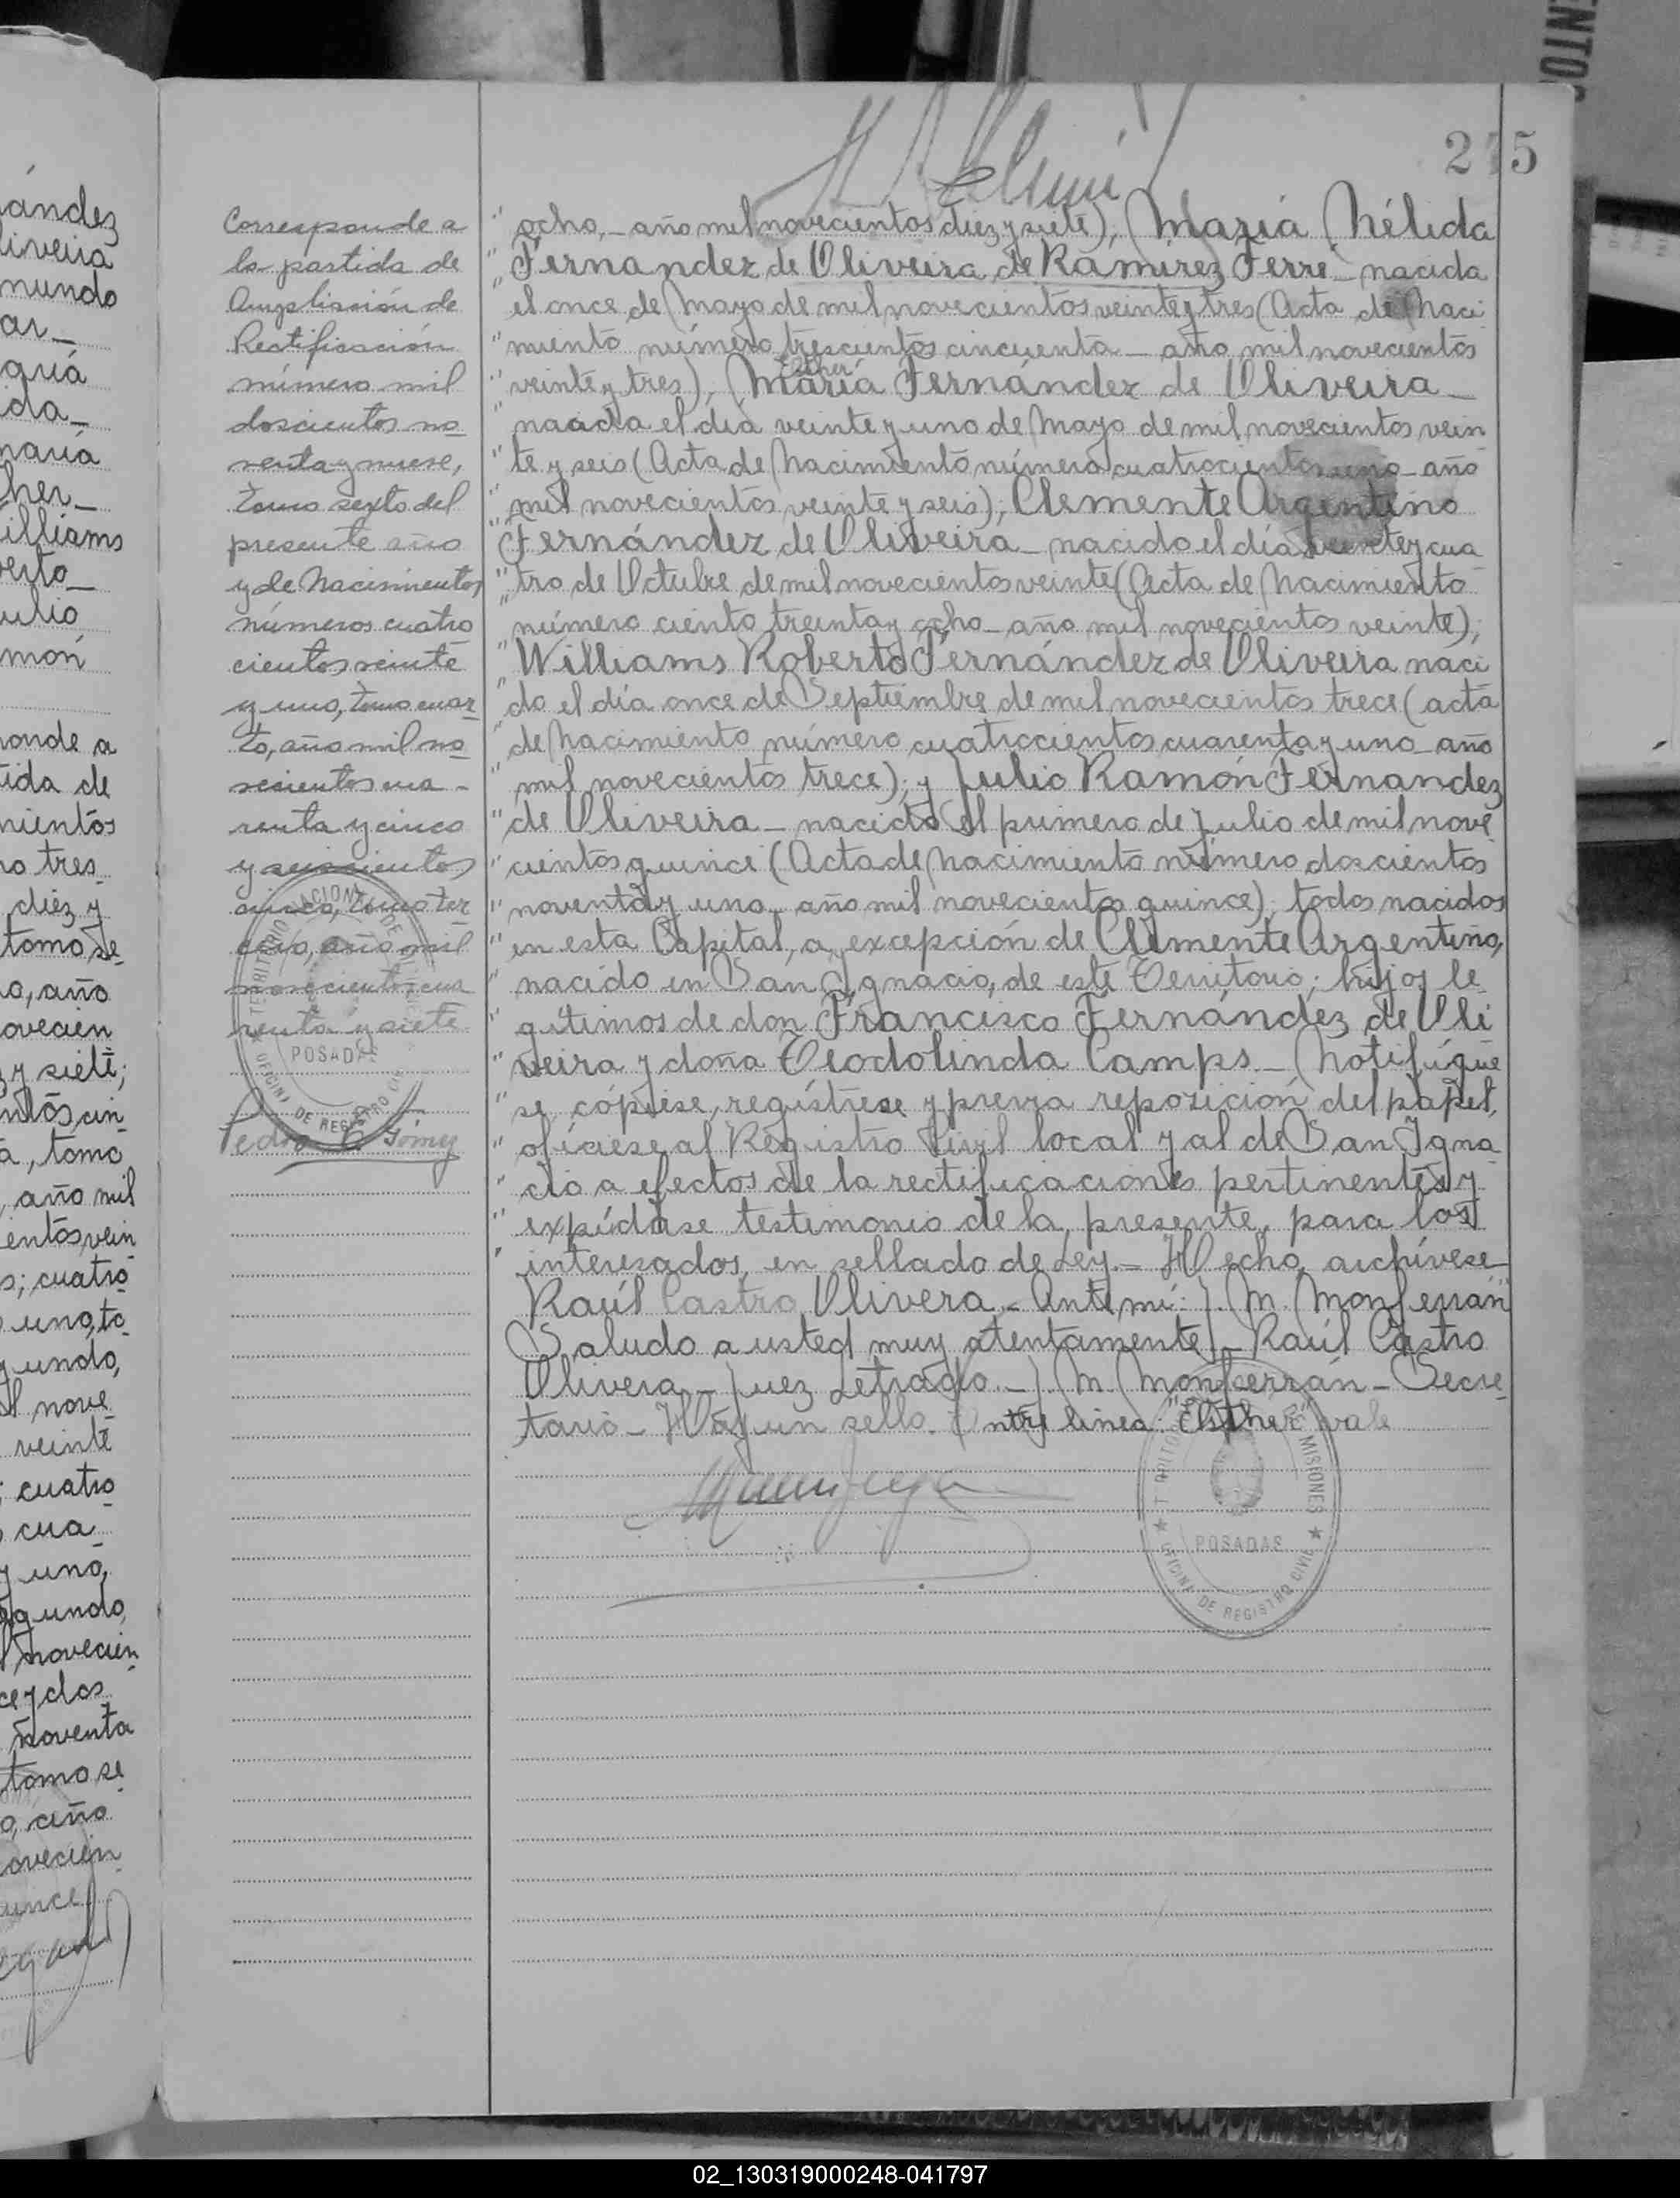 ENTO
275
Corresponde a
la partida de
Ampliación de
Rectificación
número mil
doscientos no
venta y nueve,
tomo sexto del
presente año
y de Nacimientos,
números cuatro
cientos veinte
y uno, tomo cuar
to, año mil no
vecientos cua-
renta y cinco
y seiscientos
cinco, tomo ter
cero, año mil
novecientos cua
renta y siete
POSADAS
OFICINA DE REGISTRO CIVIL
Pedro C. Gómez
" ocho,- año mil novecientos diez y siete), María Nélida
" Fernandez de Oliveira de Ramirez Ferré - nacida
" el once de Mayo de mil novecientos veinte y tres (Acta de Naci
" miento número trescientos cincuenta - año mil novecientos
Esther
" veinte y tres), María Fernández de Oliveira -
" nacida el día veinte y uno de Mayo de mil novecientos vein
" te y seis (Acta de Nacimiento número cuatrocientos uno - año
" mil novecientos veinte y seis); Clemente Argentino
" Fernández de Oliveira - nacido el día veinte y cua
" tro de Octubre de mil novecientos veinte (Acta de Nacimiento
" número ciento treinta y ocho - año mil novecientos veinte);
" Williams Roberto Fernández de Oliveira naci
" do el día once de Septiembre de mil novecientos trece (acta
" de Nacimiento número cuatrocientos cuarenta y uno - año
" mil novecientos trece); y Julio Ramón Fernandez
" de Oliveira - nacido el primero de Julio de mil nove
" cientos quince (Acta de Nacimiento número doscientos
" noventa y uno - año mil novecientos quince); todos nacidos
" en esta Capital, a excepción de Clemente Argentino,
" nacido en San Ignacio, de este Territorio; hijos le
" gítimos de don Francisco Fernández de Oli
" veira y doña Teodolinda Camps. - Notifíque
" se, cópiese, regístrese y previa reposición del papel,
" ofíciese al Registro Civil local y al de San Igna
" cio a efectos de la rectificaciones pertinentes y
" expídase testimonio de la presente, para los
" interesados, en sellado de Ley. - Hecho, archívese
Raúl Castro Olivera - Ante mí: J. M. Monferrán
Saludo a usted muy atentamente. - Raúl Castro
Olivera - Juez Letrado. - J. M. Monferrán - Secre
tario - Hay un sello. Entre línea: "Esther" vale
MISIONES
POSADAS
OFICINA DE REGISTRO CIVIL
02_130319000248-041797